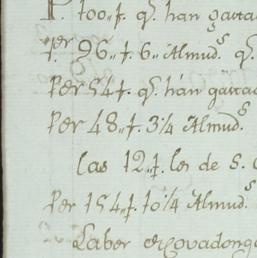 P. 100 f. q.e han gasta
per 96 f. 6 Almud.s q.
Per 54 f. q.e han gasta
Per 48 f. 3¼ Almud.s
las 12 f. les de S.
Per 154 f. 10¼ Almud.s
Laber